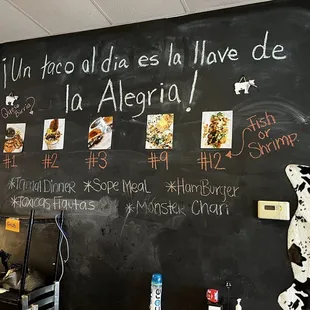 ¡Un taco al dia es la llave de
la Alegria!
Queso
Birria
#1 #2 #3 #9 #12
Fish
or
Shrimp.
*Tamal Dinner *Sope Meal *Hamburger
*Toxicas Flautas *Monster Chari